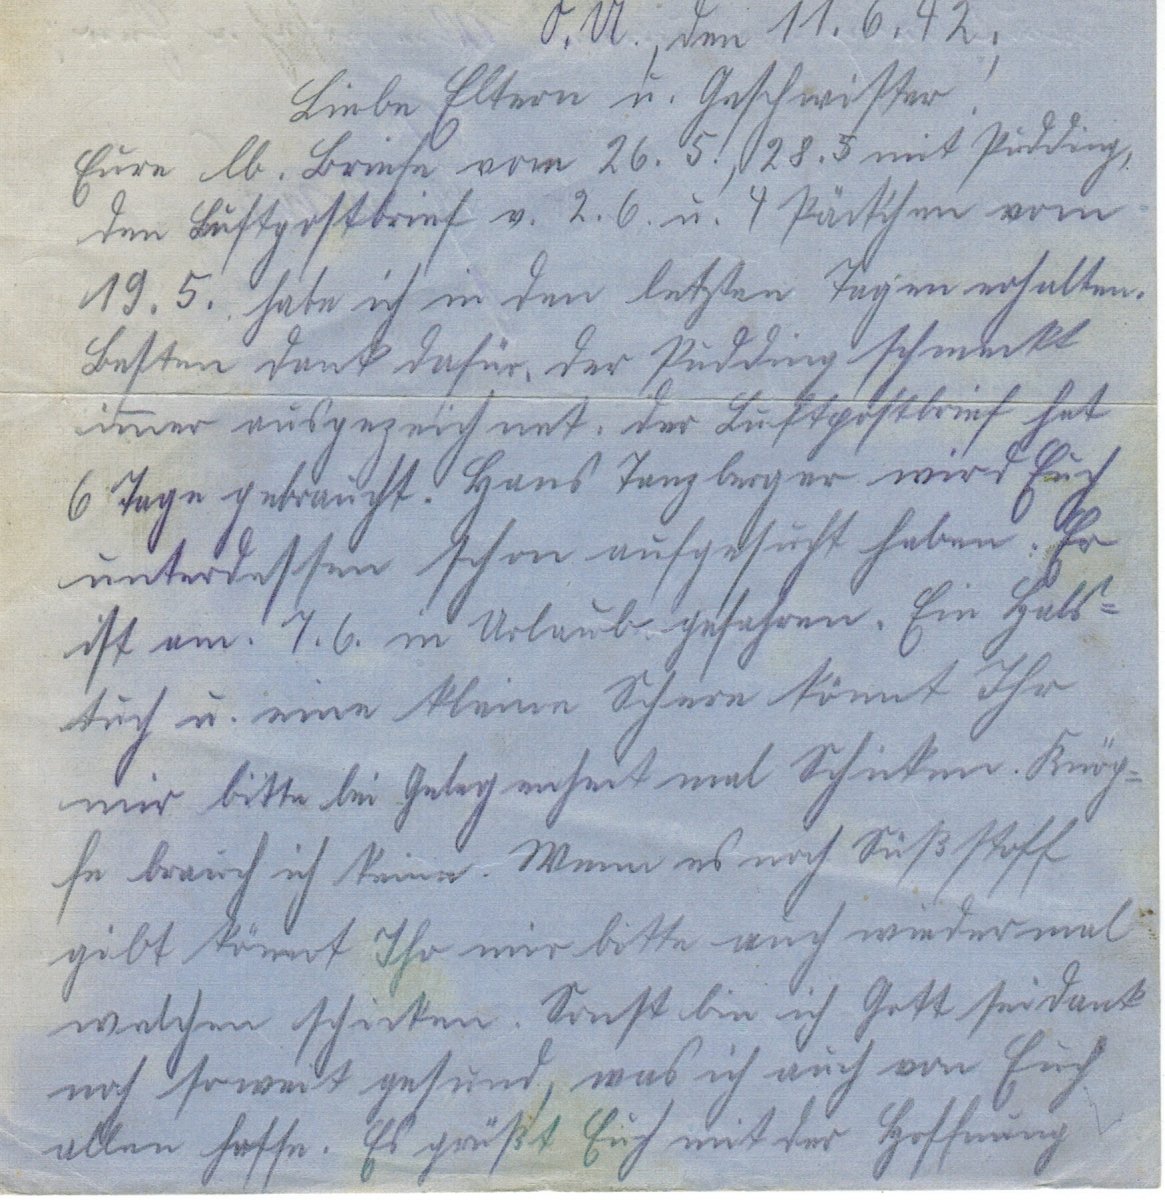 O.U., den 11.6.42.
Liebe Eltern u. Geschwister!
Eure lb. Briefe vom 26.5., 28.5 mit Pudding,
den Luftpostbrief v. 2.6. u. 4 Päckchen vom
19.5. habe ich in den letzten Tagen erhalten.
Besten Dank dafür. Der Pudding schmeckt
immer ausgezeichnet. Der Luftpostbrief hat
6 Tage gebraucht. Hans Tanzberger wird Euch
unterdessen schon aufgesucht haben. Er
ist am. 7.6. in Urlaub gefahren. Ein Hals=
tuch u. eine kleine Schere könnt Ihr
mir bitte bei Gelegenheit mal Schicken. Knöp=
fe brauch ich keine. Wenn es noch Süßstoff
gibt könnt Ihr mir bitte auch wieder mal
welchen schicken. Sonst bin ich Gott sei dank
noch soweit gesund, was ich auch von Euch
allen hoffe. Es grüßt Euch mit der Hoffnung